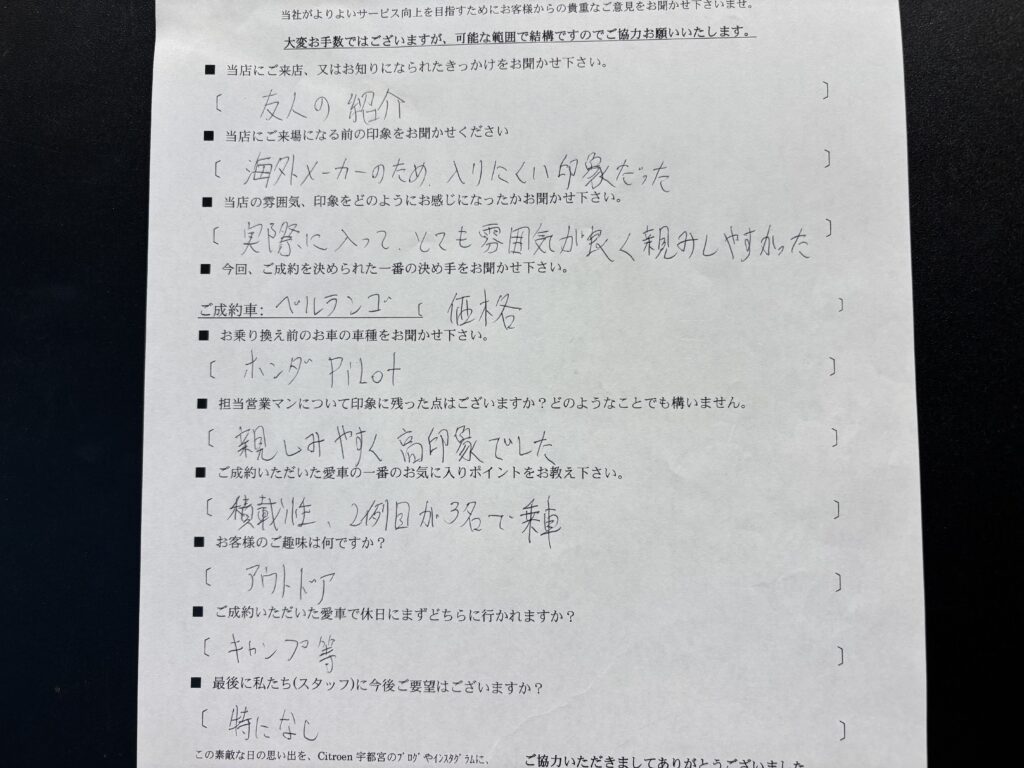 当社がよりよいサービス向上を目指すためにお客様からの貴重なご意見をお聞かせ下さいませ。
大変お手数ではございますが、可能な範囲で結構ですのでご協力お願いいたします。
■ 当店にご来店、又はお知りになられたきっかけをお聞かせ下さい。
〔 友人の紹介 〕
■ 当店にご来場になる前の印象をお聞かせください
〔 海外メーカーのため、入りにくい印象だった 〕
■ 当店の雰囲気、印象をどのようにお感じになったかお聞かせ下さい。
〔 実際に入って、とても雰囲気が良く親みしやすかった 〕
■ 今回、ご成約を決められた一番の決め手をお聞かせ下さい。
ご成約車: ベルランゴ 〔 価格 〕
■ お乗り換え前のお車の車種をお聞かせ下さい。
〔 ホンダ PiLot 〕
■ 担当営業マンについて印象に残った点はございますか？どのようなことでも構いません。
〔 親しみやすく高印象でした 〕
■ ご成約いただいた愛車の一番のお気に入りポイントをお教え下さい。
〔 積載性、2例目が3名で乗車 〕
■ お客様のご趣味は何ですか？
〔 アウトドア 〕
■ ご成約いただいた愛車で休日にまずどちらに行かれますか？
〔 キャンプ等 〕
■ 最後に私たち(スタッフ)に今後ご要望はございますか？
〔 特になし 〕
この素敵な日の思い出を、Citroen 宇都宮のブログやインスタグラムに、
ご協力いただきましてありがとうございました